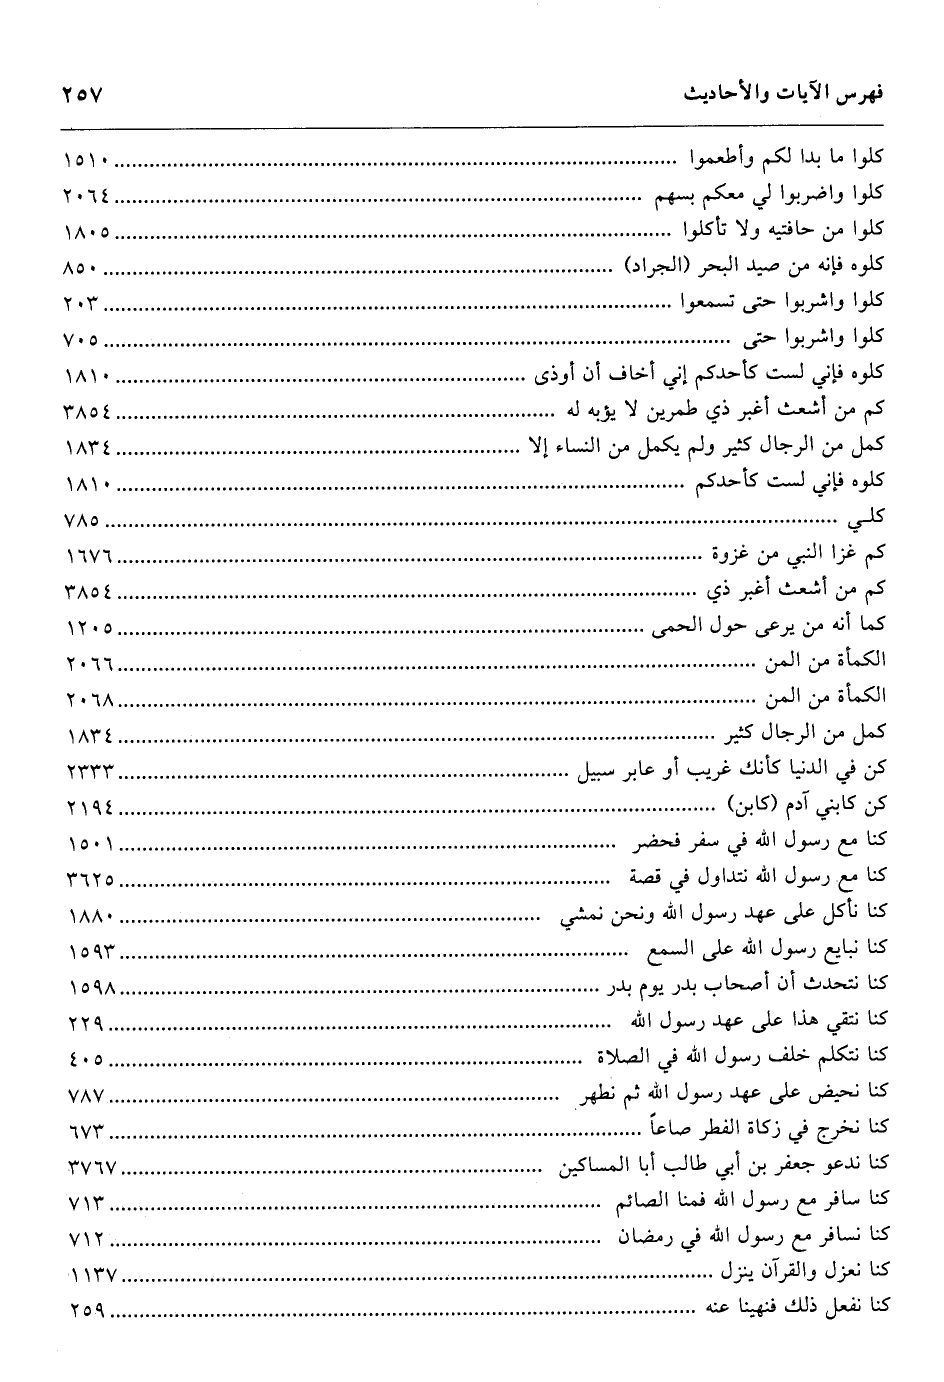 فهرس الآيات والأحاديث ٢٥٧
كلوا ما بدا لكم وأطعموا ..... ١٥١٠
كلوا واضربوا لي معكم بسهم ..... ٢٠٦٤
كلوا من حافتيه ولا تأكلوا ..... ١٨٠٥
كلوه فإنه من صيد البحر (الجراد) ..... ٨٥٠
كلوا واشربوا حتى تسمعوا ..... ٢٠٣
كلوا واشربوا حتى ..... ٧٠٥
كلوه فإني لست كأحدكم إني أخاف أن أوذى ..... ١٨١٠
كم من أشعث أغبر ذي طمرين لا يؤبه له ..... ٣٨٥٤
كمل من الرجال كثير ولم يكمل من النساء إلا ..... ١٨٣٤
كلوه فإني لست كأحدكم ..... ١٨١٠
كلي ..... ٧٨٥
كم غزا النبي من غزوة ..... ١٦٧٦
كم من أشعث أغبر ذي ..... ٣٨٥٤
كما أنه من يرعى حول الحمى ..... ١٢٠٥
الكمأة من المن ..... ٢٠٦٦
الكمأة من المن ..... ٢٠٦٨
كمل من الرجال كثير ..... ١٨٣٤
كن في الدنيا كأنك غريب أو عابر سبيل ..... ٢٣٣٣
كن كابني آدم (كابن) ..... ٢١٩٤
كنا مع رسول الله في سفر فحضر ..... ١٥٠١
كنا مع رسول الله نتداول في قصة ..... ٣٦٢٥
كنا نأكل على عهد رسول الله ونحن نمشي ..... ١٨٨٠
كنا نبايع رسول الله على السمع ..... ١٥٩٣
كنا نتحدث أن أصحاب بدر يوم بدر ..... ١٥٩٨
كنا نتقي هذا على عهد رسول الله ..... ٢٢٩
كنا نتكلم خلف رسول الله في الصلاة ..... ٤٠٥
كنا نحيض على عهد رسول الله ثم نطهر ..... ٧٨٧
كنا نخرج في زكاة الفطر صاعاً ..... ٦٧٣
كنا ندعو جعفر بن أبي طالب أبا المساكين ..... ٣٧٦٧
كنا سافر مع رسول الله فمنا الصائم ..... ٧١٣
كنا نسافر مع رسول الله في رمضان ..... ٧١٢
كنا نعزل والقرآن ينزل ..... ١١٣٧
كنا نفعل ذلك فنهينا عنه ..... ٢٥٩